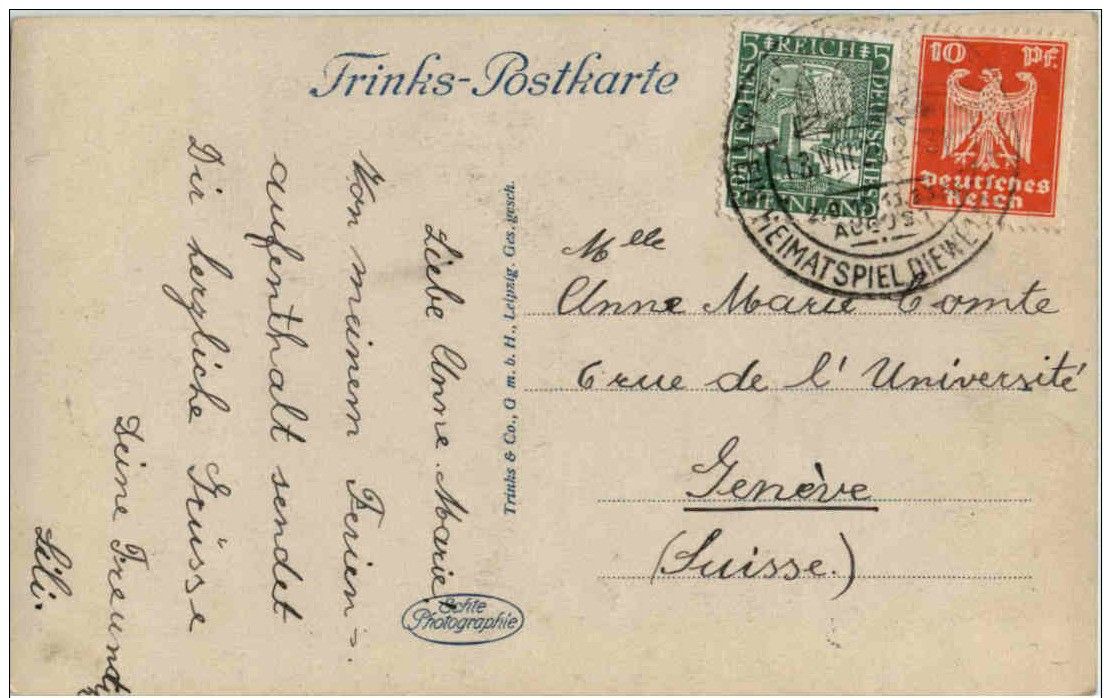 Trinks-Postkarte
Liebe Anne-Marie,
Von meinem Ferien=
aufenthalt sendet
Dir herzliche Grüsse
Deine Freund
Lili.
Trinks & Co., G m. b. H., Leipzig. Ges. gesch.
Echte
Photographie
5 REICH 5
DEUTSCHES
10 Pf.
Deutsches
Reich
13. VIII
AUGUST
HEIMATSPIEL
Mlle
Anne Marie Comte
6 rue de l' Université
Genève
(Suisse.)